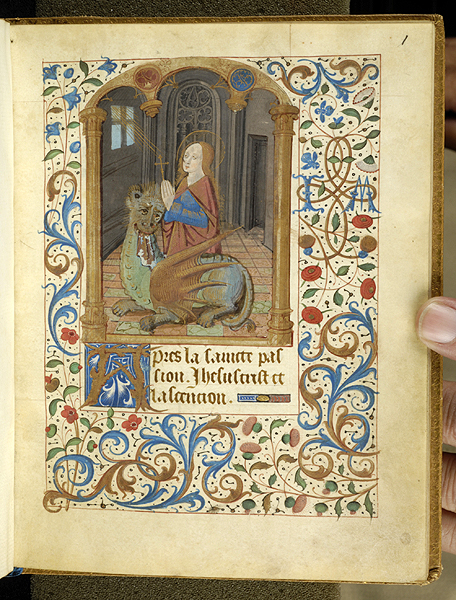 1
I A
Apres la saincte pas
sion. Jhesucrist et
lascencion.